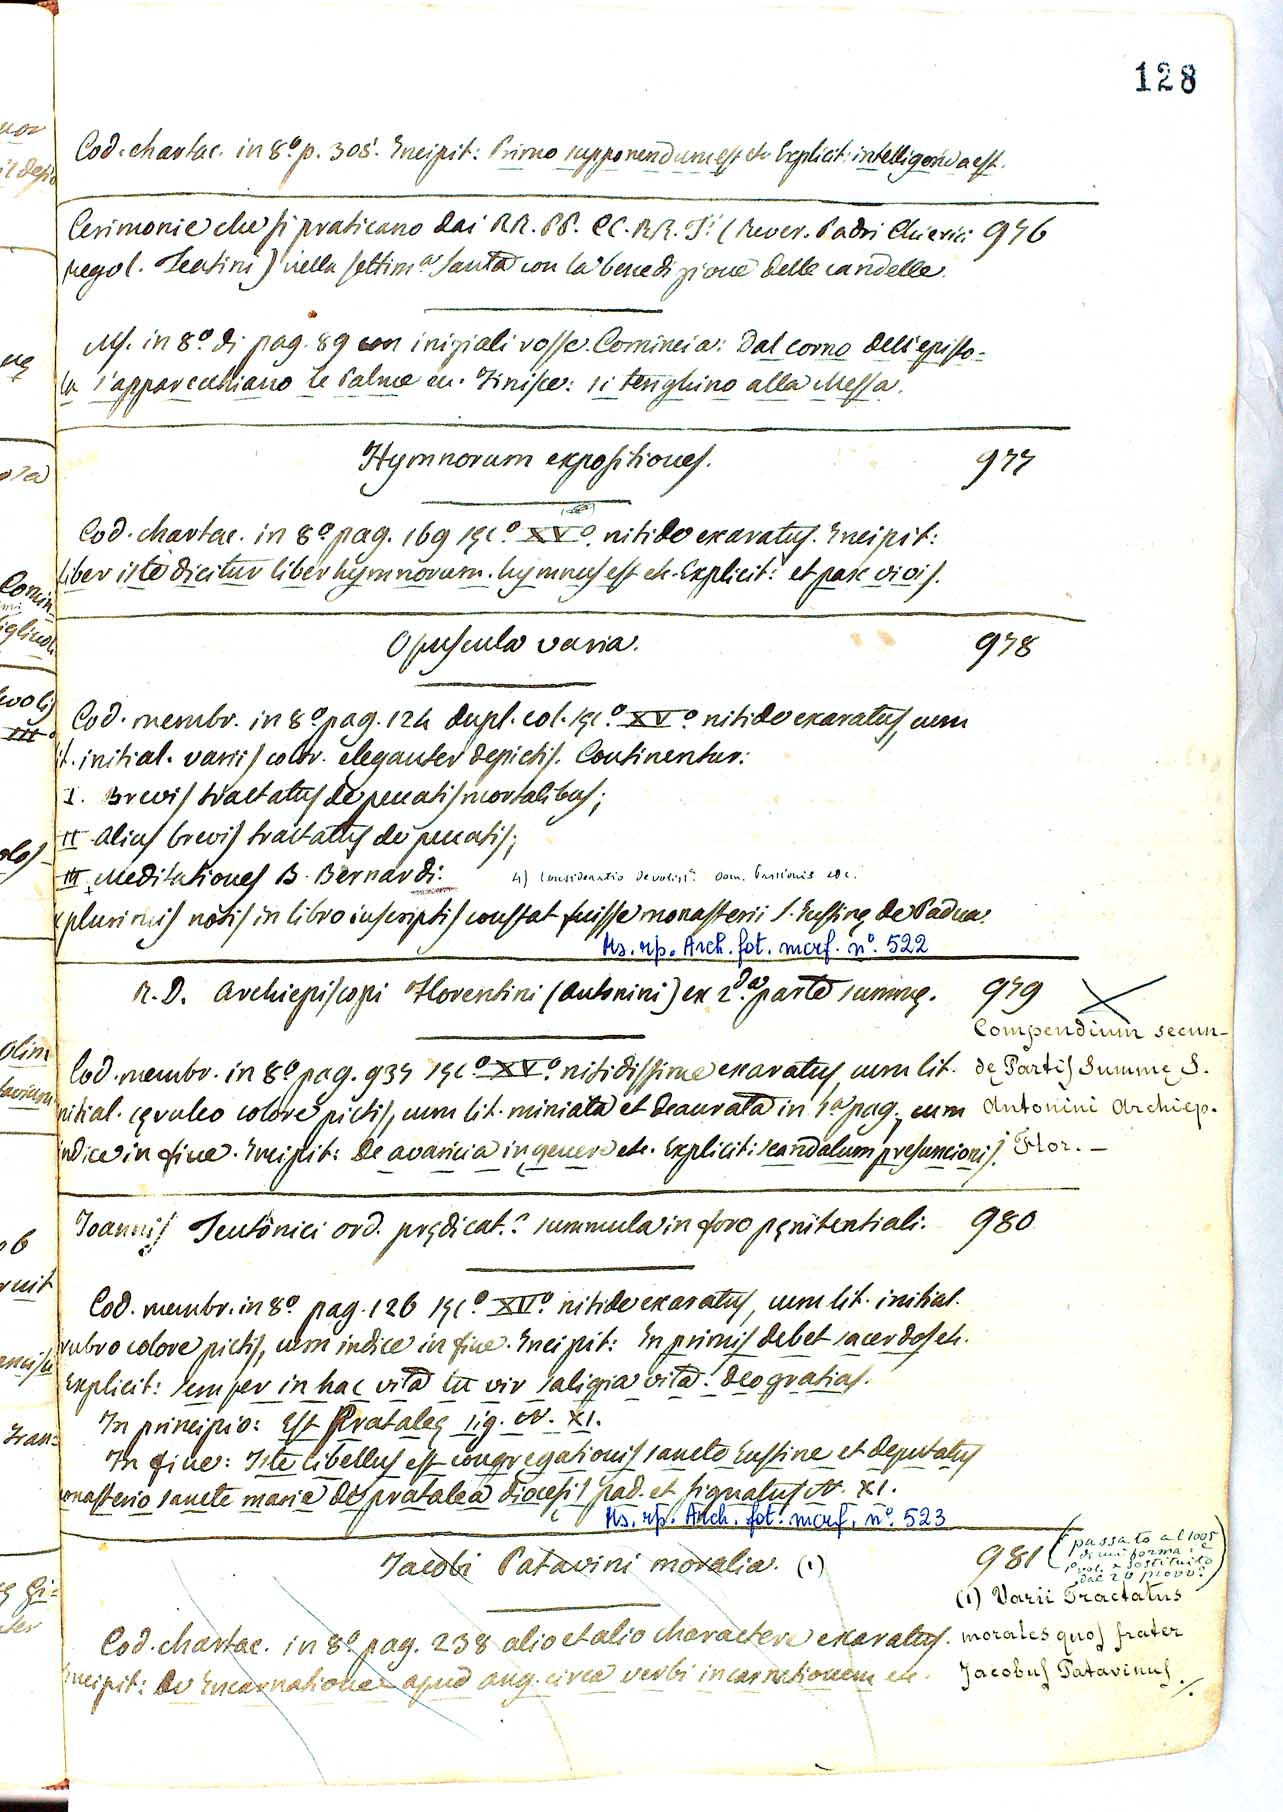 128
Cod. chartac. in 8º. p. 305. Incipit: Primo supponendum est etc. Explicit: intelligenda est.
Cerimonie che si praticano dai RR. PP. CC. RR. Ti (Rever. Padri Chierici 976
regol. Teatini) nella settima santa con la benedizione delle candelle.
Ms. in 8º. di pag. 89 con iniziali rosse. Comincia: Dal corno dell'episto-
la s'apparecchiano le Palme ec. Finisce: si tenghino alla Messa.
Hymnorum expositiones. 977
Cod. chartac. in 8º pag. 169 sec.º XVº. nitide exaratus. Incipit:
Liber iste dicitur liber hymnorum. hymnus est etc. Explicit: et pax vivis.
Opuscula varia. 978
Cod. membr. in 8º pag. 124 dupl. col. sec.º XVº nitide exaratus, cum
lit. initial. variis color. eleganter depictis. Continentur:
I. Brevis tractatus de peccatis mortalibus;
II Alius brevis tractatus de peccatis;
III Meditationes B. Bernardi. 4) Consideratio devotiss. Dom. Passionis etc.
x plurimis notis in libro inscriptis constat fuisse monasterii S. Justinę de Padua.
Ms. rp. Arch. fot. mcrf. nº. 522
R. D. Archiepiscopi Florentini (Antonini) ex 2.da parte summę. 979
Compendium secun-
Cod. membr. in 8º pag. 937 sec.º XVº. nitidissime exaratus, cum lit. dę Partis Summę S.
initial. cęruleo colore pictis, cum lit. miniata et deaurata in 1ª pag., cum Antonini Archiep.
indice in fine. Incipit: De avaricia in genere etc. Explicit: scandalum presuncionis. Flor. –
Joannis Teutonici ord. prędicat. summula in foro pęnitentiali. 980
Cod. membr. in 8º pag. 126 sec.º XIVº. nitide exaratus, cum lit. initial.
rubro colore pictis, cum indice in fine. Incipit: In primis debet sacerdos etc.
Explicit: semper in hac vita tu vir saligia vita. Deo gratias.
In principio: Est Prataleę sig. XI.
In fine: Iste libellus est congregationis sancte Justine et deputatus
monasterio sancte marie de pratalea diocesis pad. et signatus XI.
Ms. rp. Arch. fot. mcrf. nº. 523
Jacobi Patavini moralia. (1) 981 (passato al 1005
di uniforma: e
sostituito
dal 20 provv.)
(1) Varii Tractatus
Cod. chartac. in 8º pag. 238 alio et alio charactere exaratus. morales quos frater
Incipit: De Incarnatione apud aug. circa verbi incarnationem etc. Jacobus Patavinus.